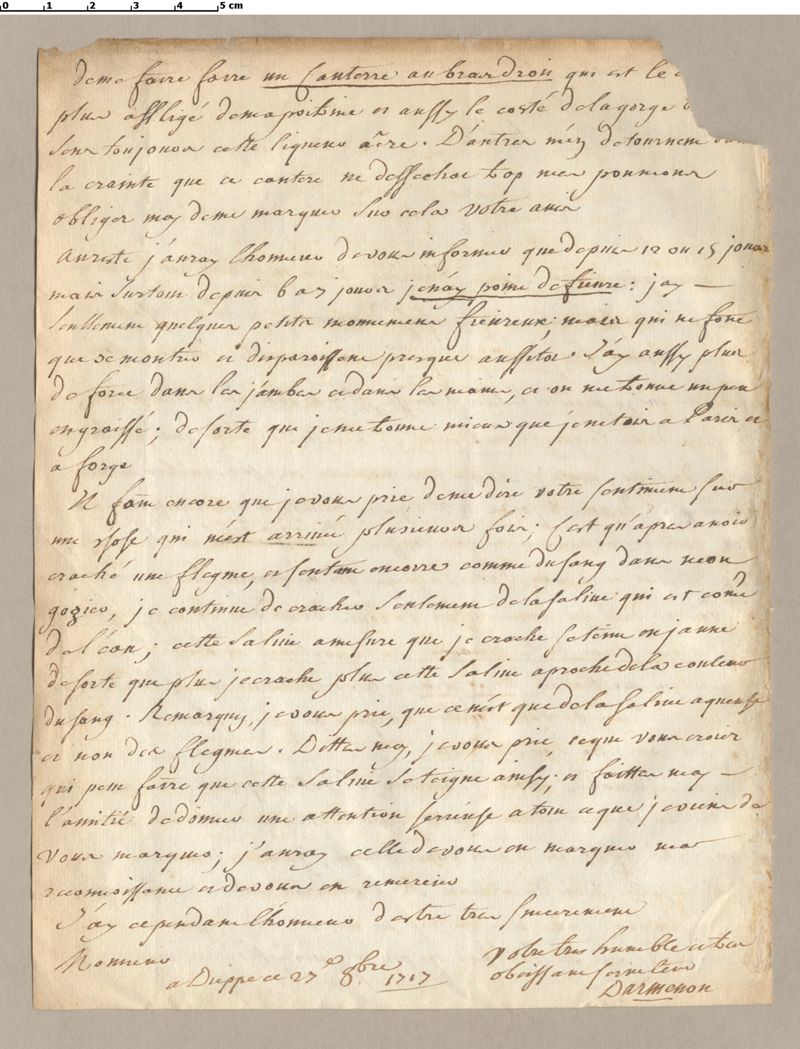 0 1 2 3 4 5 cm
deme faire faire un Cauterre au bras droit qui est le
plus affligé dema poitrine et aussy le costé dela gorge
sens toujours cette liqueur acre. D'autres m'en detournent
la crainte que ce cautere ne desseche trop mes poumons
obliges moy deme marquer sur cela votre avis
Aureste j'auray lhonneur devous informer que depuis 12 ou 15 jours
mais surtout depuis 6 a 7 jours jenáy point defievre: jay —
seullement quelques petits momemens fievreux, mais qui ne font
que se montrer et disparoissent presque aussitot. J'áy aussy plus
deforce dans les jambes et dans les mains, et on me trouve un peu
engraissé; desorte que jeme trouve mieux que jenetois a Paris et
a forge
Il faut encore que jevous prie deme dire votre sentiment sur
une chose qui m'est arrivée plusieurs fois; C'est qu'apres avoir
craché une flegme, et sentant encorre comme du sang dans mon
gozier, je continue decracher seulement dela salive qui est com̃e
del'éau; cette salive amesure que je crache seteint en jaune
desorte que plus jecrache plus cette salive aproche dela couleur
du sang. Remarques, jevous prie, que cen'est que dela salive aqueuse
et non des flegmes. Dittes moy, jevous prie, ceque vous croiés
qui peut faire que cette salive seteigne ainsy; et faittes moy —
l'amitié dedonner une attention serieuse atout ceque jeviens de
vous marquer; j'auray celle devous en marquer ma
reconnoissance et devous en remercier
J'áy cependant lhonneur destre tres sincerement
Monsieur
votre tres humble et tres
obeissant serviteur
a Dieppe ce 27e 8bre 1717
Darmenon